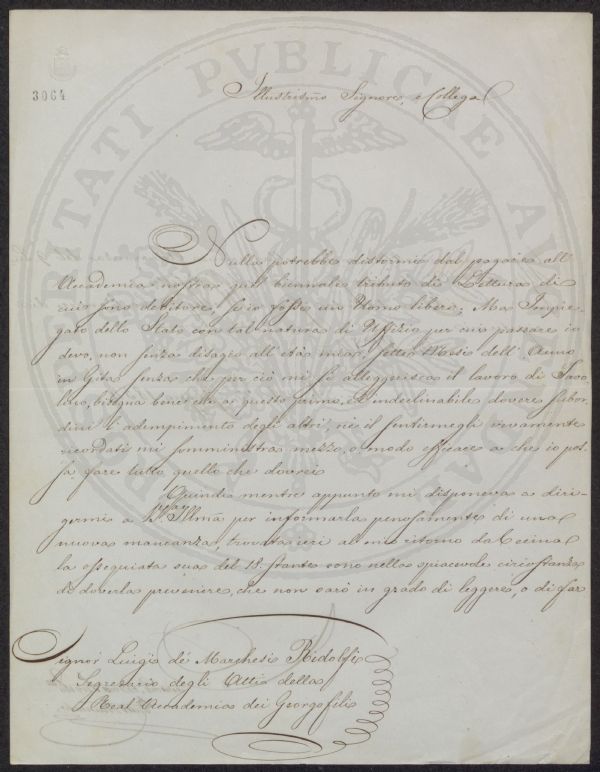 3064
PROSPERITATI PVBLICAE AVGENDAE
Illustrismo Signore, e Collega
Nulla potrebbe distormi dal pagare all'
Accademia nostra quel biennale tributo di Lettura di
cui sono debitore, se io fossi un Uomo libero; Ma Impie-
gato dello Stato con tal natura di Uffizio per cui passare io
devo, non senza disagio all'età mia, sette Mesi dell'Anno
in Gita, senza che per ciò mi si alleggerisca il lavoro di Tavo-
lino, bisogna bene che a questo primo, e indeclinabile dovere subor-
dini l'adempimento degli altri, né il sentirmegli vivamente
ricordati mi somministra mezzo, o modo efficace a che io pos-
sa fare tutto quello che dovrei
Quindi mentre appunto mi disponeva a diri-
germi a V.S. Illma per informarla penosamente di una
nuova mancanza, trovata ieri al mio ritorno da Cecina
la ossequiata sua del 18 stante sono nella spiacevole circostanza
di doverla prevenire, che non sarò in grado di leggere, o di far
Signor Luigi de' Marchesi Ridolfi
Segretario degli Atti della
Real Accademia dei Georgofili